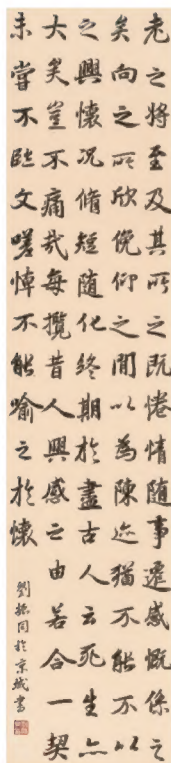 老之將至及其所之既惓情隨事遷感慨係之
矣向之所欣俛仰之間以為陳迹猶不能不以
之興懷況脩短隨化終期於盡古人云死生亦
大矣豈不痛哉每攬昔人興感之由若合一契
未嘗不臨文嗟悼不能喻之於懷
劉振同於京城書